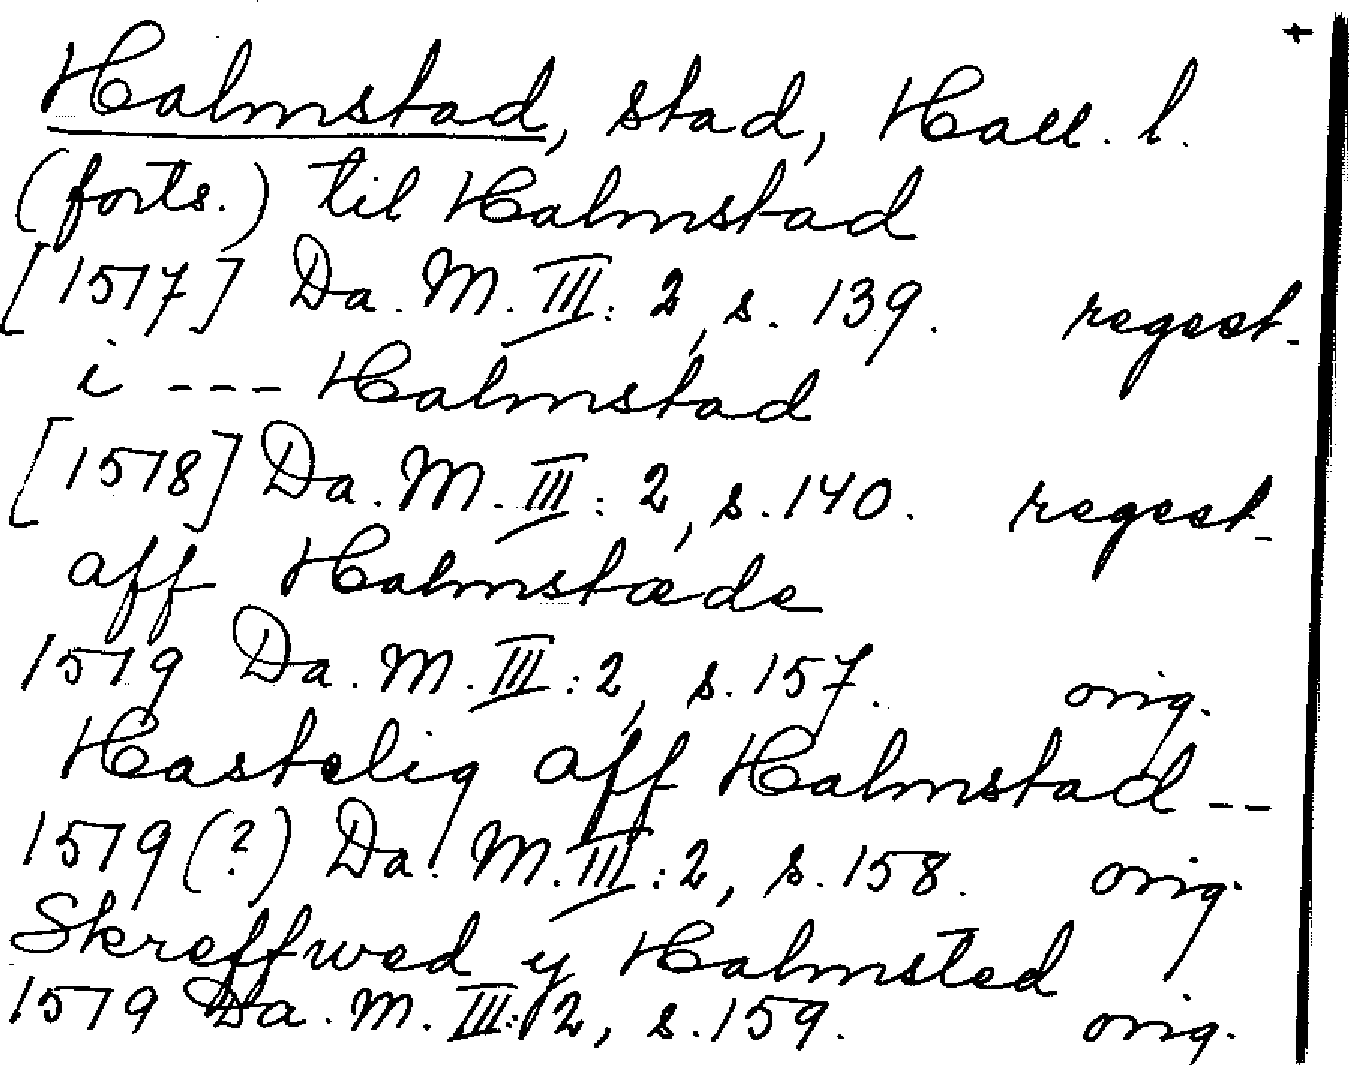 +
Halmstad, stad, Hall. l.
(forts.) til Halmstad
[1517] Da. M. III: 2, s. 139. regest.
i --- Halmstad
[1518] Da. M. III: 2, s. 140. regest.
aff Halmstæde
1519 Da. M. III: 2, s. 157. orig.
Hastelig aff Halmstad --
1519 (?) Da. M. III: 2, s. 158. orig.
Skreffwed y Halmsted
1519 Da. M. III: 2, s. 159. orig.